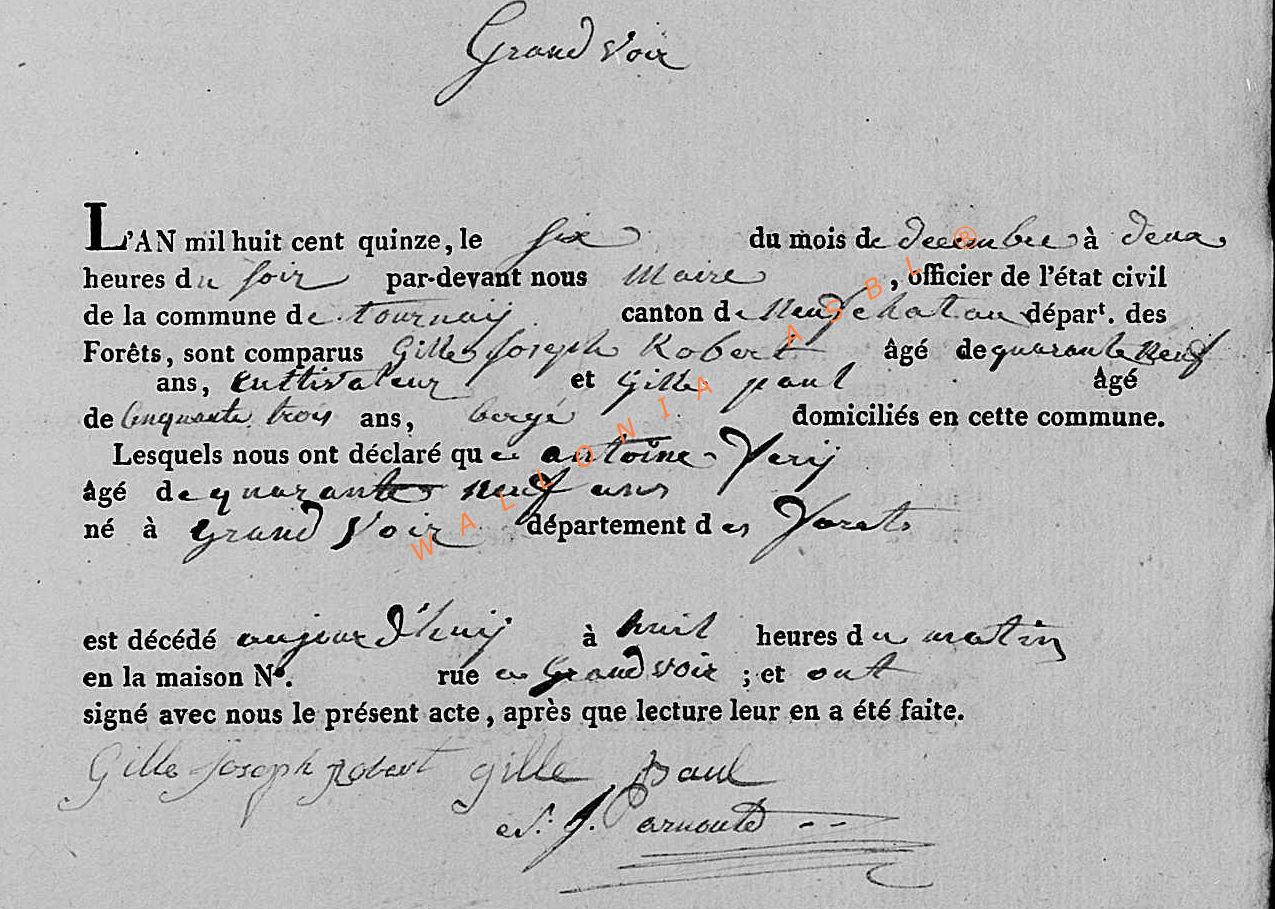 Grand Voir
L'AN mil huit cent quinze, le six du mois de decembre à deux
heures du soir par-devant nous Maire , officier de l'état civil
de la commune de tournay canton de Neufchatau départ. des
Forêts, sont comparus Gille Joseph Robert âgé de quarante neuf
ans, cultivateur et Gille paul âgé
de Cinquante trois ans, bergé domiciliés en cette commune.
Lesquels nous ont déclaré que antoine
âgé de quarante neuf ans
né à Grand Voir département des Forets
est décédé aujourd'huy à huit heures du matin
en la maison N°. rue en Grand voir ; et ont
signé avec nous le présent acte, après que lecture leur en a été faite.
Gille Joseph Robert gille Paul
WALLONIA ASBL ®